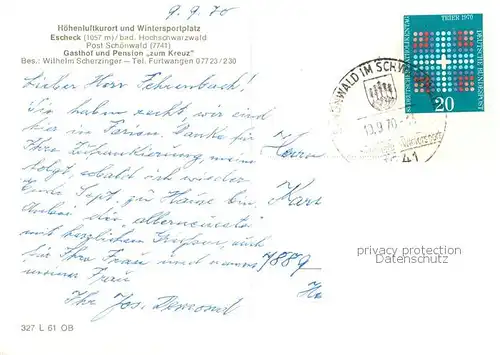 9.9.70
Höhenluftkurort und Wintersportplatz
Escheck (1057 m) / bad. Hochschwarzwald
Post Schönwald (7741)
Gasthof und Pension „zum Kreuz"
Bes.: Wilhelm Scherzinger – Tel. Furtwangen 07723/230
Lieber Herr Fehrenbach!
Sie haben recht, wir sind
hier in Ferien. Danke für
Ihre
folgt, sobald ich wieder
Ende Sept. zu Hause bin.
Anbei die "allerneueste"
mit herzlichen Grüßen, auch
für Ihre Frau und namens
meiner Frau
Ihr Jos.
327 L 61 OB
TRIER 1970
DEUTSCHER KATHOLIKENTAG
DEUTSCHE BUNDESPOST
20
SCHÖNWALD IM SCHW
10.9.70
41
Herrn
Karl
7889
privacy protection
Datenschutz